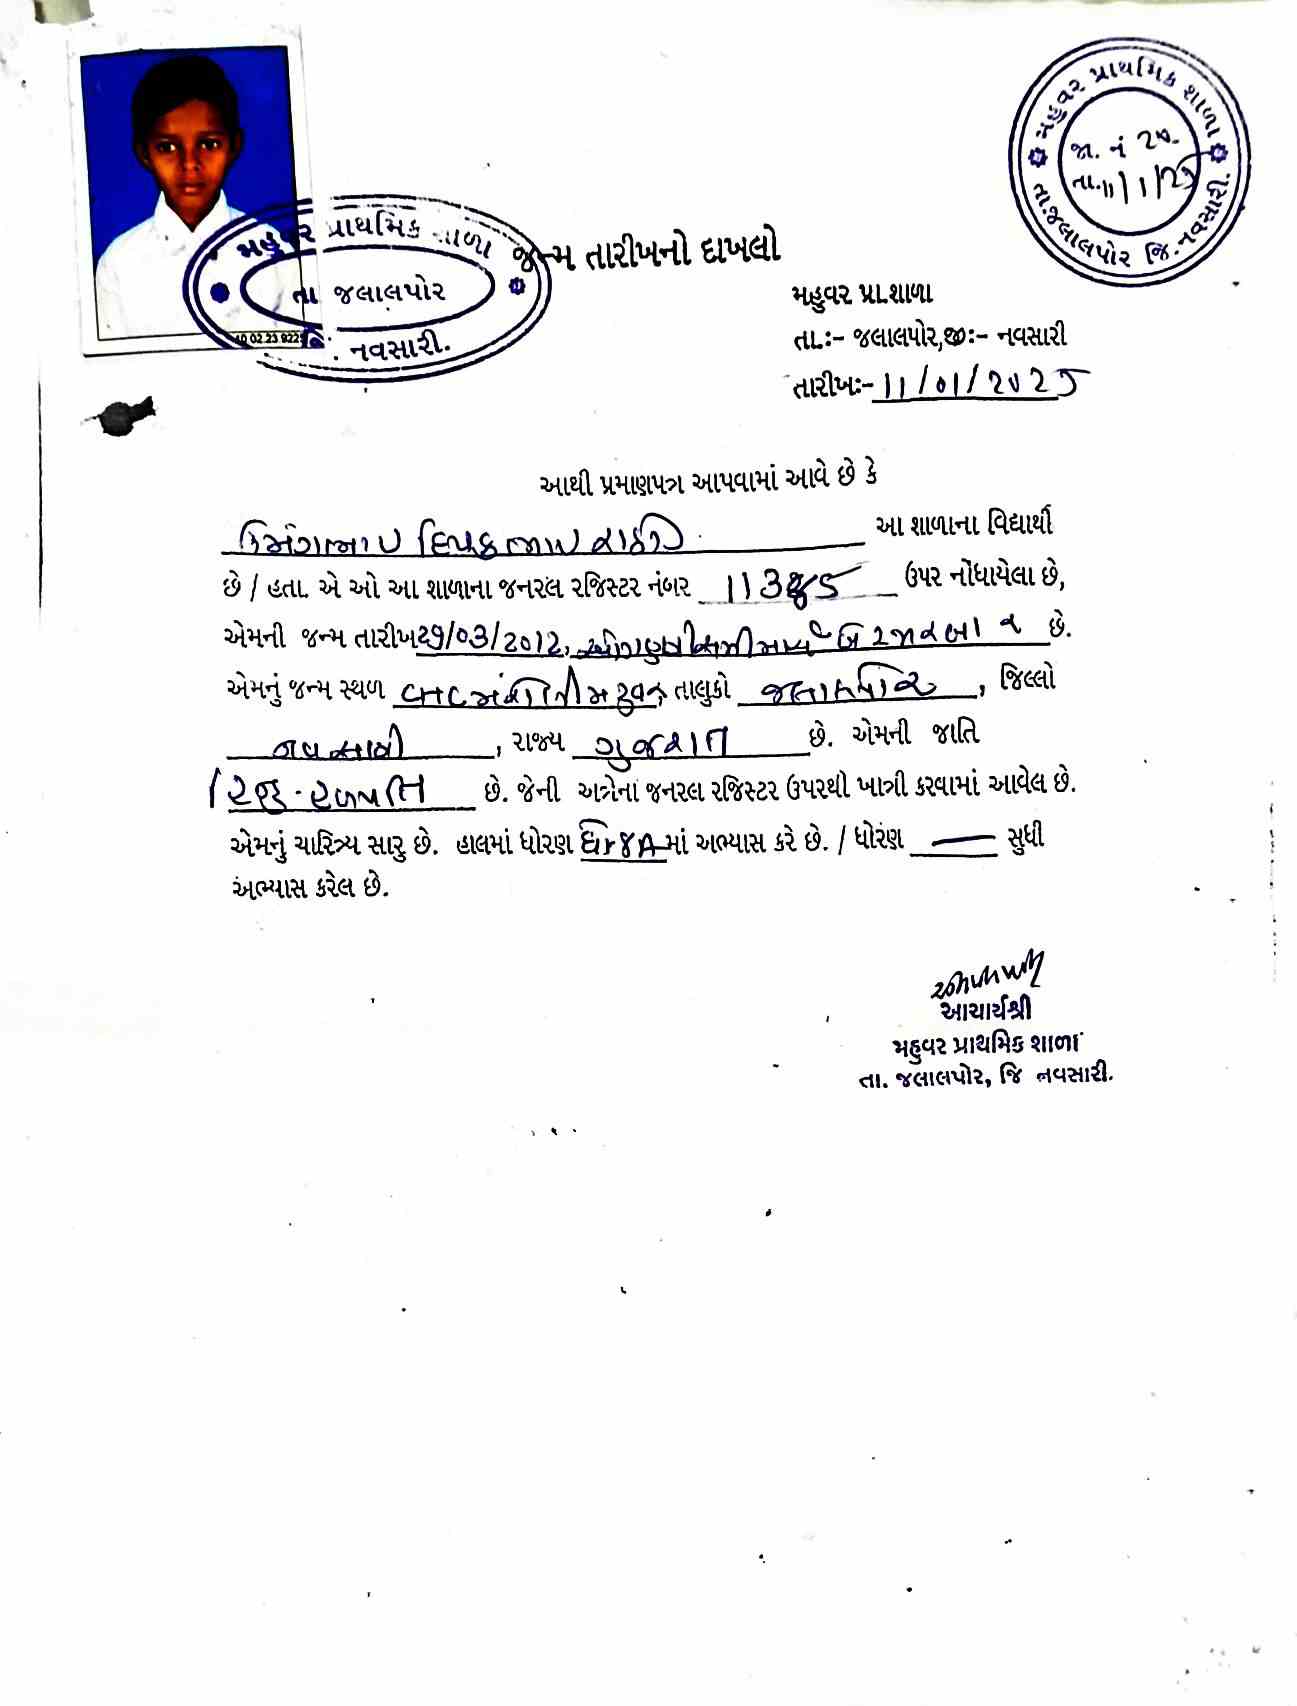 મહુવર પ્રાથમિક શાળા
જા. નં
તા. 11/1/25
તા.જલાલપોર જિ.નવસારી.
મહુવર પ્રાથમિક શાળા
તા જલાલપોર
નવસારી.
જન્મ તારીખનો દાખલો
મહુવર પ્રા.શાળા
તા.:- જલાલપોર,જી:- નવસારી
તારીખ:- 11/01/2025
આથી પ્રમાણપત્ર આપવામાં આવે છે કે
આ શાળાના વિદ્યાર્થી
છે / હતા. એ ઓ આ શાળાના જનરલ રજિસ્ટર નંબર ઉપર નોંધાયેલા છે,
એમની જન્મ તારીખ /03/2012, છે.
એમનું જન્મ સ્થળ મહુવર તાલુકો જલાલપોર, જિલ્લો
નવસારી, રાજ્ય ગુજરાત છે. એમની જાતિ
હિન્દુ- હળપતિ છે. જેની અત્રેના જનરલ રજિસ્ટર ઉપરથી ખાત્રી કરવામાં આવેલ છે.
એમનું ચારિત્ર્ય સારુ છે. હાલમાં ધોરણ માં અભ્યાસ કરે છે. / ધોરણ — સુધી
અભ્યાસ કરેલ છે.
આચાર્યશ્રી
મહુવર પ્રાથમિક શાળા
તા. જલાલપોર, જિ નવસારી.